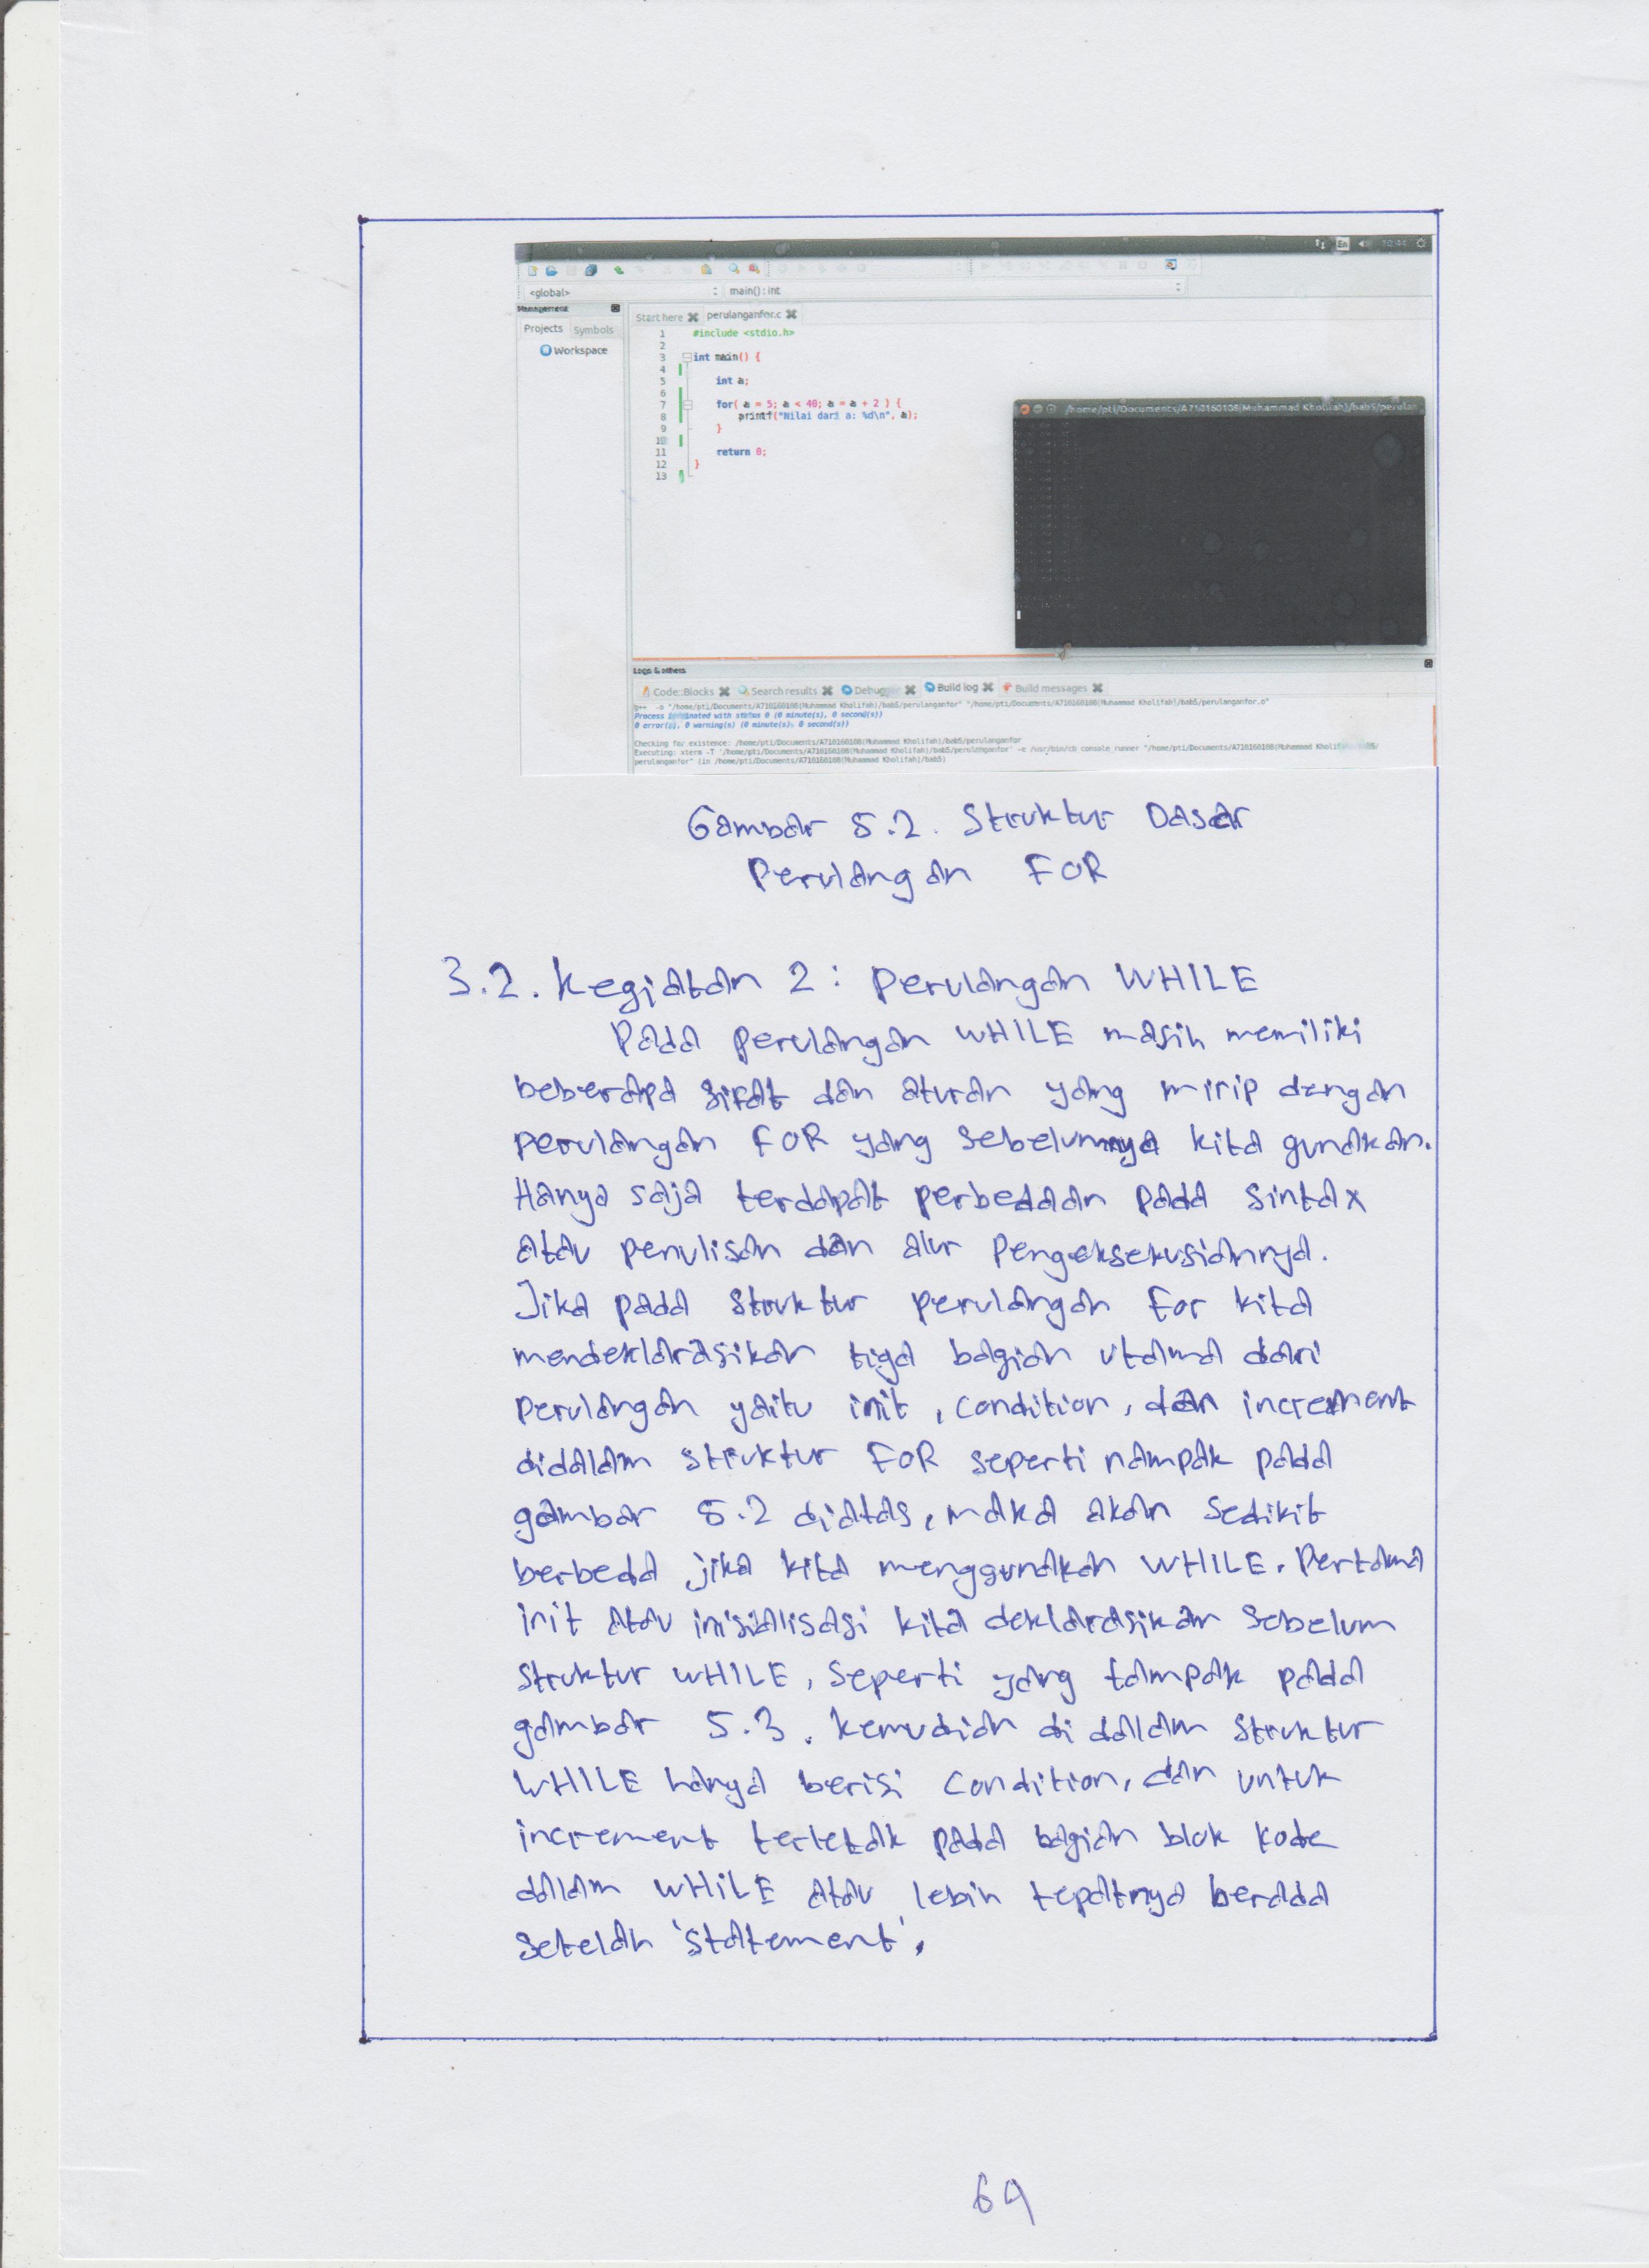 En 10:44
<global>
main() : int
Management
Projects Symbols
Workspace
Start here perulanganfor.c
1 #include <stdio.h>
2
3 int main() {
4
5 int a;
6
7 for( a = 5; a < 40; a = a + 2 ) {
8 printf("Nilai dari a: %d\n", a);
9 }
10
11 return 0;
12 }
13
/home/pti/Documents/A710160108(Muhammad Kholifah)/bab5/perulan
Logs & others
Code::Blocks Search results Debugger Build log Build messages
g++ -o "/home/pti/Documents/A710160108(Muhammad Kholifah)/bab5/perulanganfor" "/home/pti/Documents/A710160108(Muhammad Kholifah)/bab5/perulanganfor.o"
Process terminated with status 0 (0 minute(s), 0 second(s))
0 error(s), 0 warning(s) (0 minute(s), 0 second(s))
Checking for existence: /home/pti/Documents/A710160108(Muhammad Kholifah)/bab5/perulanganfor
Executing: xterm -T '/home/pti/Documents/A710160108(Muhammad Kholifah)/bab5/perulanganfor' -e /usr/bin/cb_console_runner "/home/pti/Documents/A710160108(Muhammad Kholifah)/bab5/
perulanganfor" (in /home/pti/Documents/A710160108(Muhammad Kholifah)/bab5)
Gambar 5.2. Struktur Dasar
Perulangan FOR
3.2. Kegiatan 2 : Perulangan WHILE
Pada perulangan WHILE masih memiliki
beberapa sifat dan aturan yang mirip dengan
perulangan FOR yang sebelumnya kita gunakan.
Hanya saja terdapat perbedaan pada sintax
atau penulisan dan alur pengeksekusiannya.
Jika pada struktur perulangan for kita
mendeklarasikan tiga bagian utama dari
perulangan yaitu init, condition, dan increment
didalam struktur FOR seperti nampak pada
gambar 5.2 diatas, maka akan sedikit
berbeda jika kita menggunakan WHILE. Pertama
init atau inisialisasi kita deklarasikan sebelum
struktur WHILE, seperti yang tampak pada
gambar 5.3. kemudian di dalam struktur
WHILE hanya berisi condition, dan untuk
increment terletak pada bagian blok kode
dalam WHILE atau lebih tepatnya berada
setelah 'statement'.
69